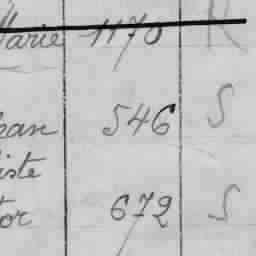 Marie 1170 R
546 S
iste
tor 672 S